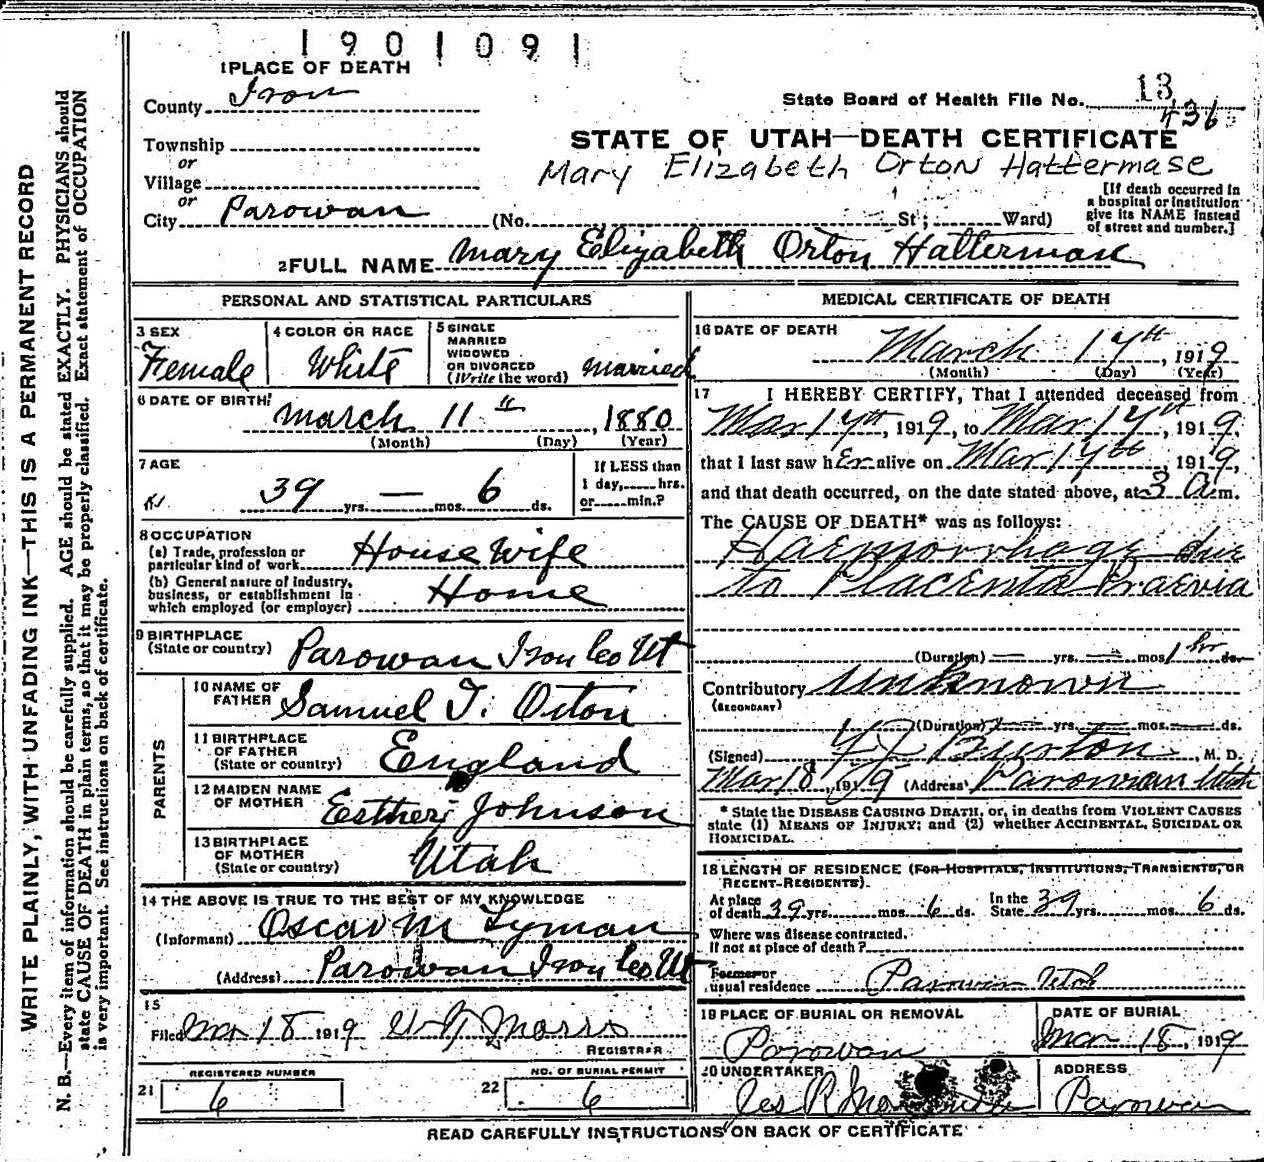 1901091
1 PLACE OF DEATH
County Iron
State Board of Health File No. 13
436
Township
or
Village
or
City Parowan (No. St; Ward)
STATE OF UTAH—DEATH CERTIFICATE
Mary Elizabeth Orton Hattermase
[If death occurred in
a hospital or institution
give its NAME instead
of street and number.]
2 FULL NAME Mary Elizabeth Orton Halterman
PERSONAL AND STATISTICAL PARTICULARS
3 SEX
Female
4 COLOR OR RACE
White
5 SINGLE
MARRIED
WIDOWED
OR DIVORCED
(Write the word) married
6 DATE OF BIRTH
march 11th, 1880
(Month) (Day) (Year)
7 AGE
39 yrs. — mos. 6 ds.
If LESS than
1 day, hrs.
or min.?
8 OCCUPATION
(a) Trade, profession or
particular kind of work House Wife
(b) General nature of industry,
business, or establishment in
which employed (or employer) Home
9 BIRTHPLACE
(State or country) Parowan Iron Co Ut
PARENTS
10 NAME OF
FATHER Samuel T. Orton
11 BIRTHPLACE
OF FATHER
(State or country) England
12 MAIDEN NAME
OF MOTHER Esther Johnson
13 BIRTHPLACE
OF MOTHER
(State or country) Utah
14 THE ABOVE IS TRUE TO THE BEST OF MY KNOWLEDGE
(Informant) Oscar M Lyman
(Address) Parowan Iron Co Ut
15
Filed Mar 18 1919 Morris
REGISTRAR
REGISTERED NUMBER
21 6
NO. OF BURIAL PERMIT
22 6
MEDICAL CERTIFICATE OF DEATH
16 DATE OF DEATH
March 17th, 1919
(Month) (Day) (Year)
17 I HEREBY CERTIFY, That I attended deceased from
Mar 17th, 1919, to Mar 17th, 1919,
that I last saw her alive on Mar 17th, 1919,
and that death occurred, on the date stated above, at 3 A.m.
The CAUSE OF DEATH* was as follows:
Haemorrhage due
to Placenta Praevia
(Duration) — yrs. — mos. 1 hr ds.
Contributory Unknown
(SECONDARY)
(Duration) — yrs. — mos. — ds.
(Signed) Burton, M. D.
Mar 18, 1919 (Address) Parowan Utah
* State the DISEASE CAUSING DEATH, or, in deaths from VIOLENT CAUSES
state (1) MEANS OF INJURY; and (2) whether ACCIDENTAL, SUICIDAL OR
HOMICIDAL.
18 LENGTH OF RESIDENCE (FOR HOSPITALS, INSTITUTIONS, TRANSIENTS, OR
RECENT RESIDENTS).
At place
of death 39 yrs. mos. 6 ds.
In the
State 39 yrs. mos. 6 ds.
Where was disease contracted.
If not at place of death?
Former or
usual residence Parowan Utah
19 PLACE OF BURIAL OR REMOVAL
Parowan
DATE OF BURIAL
Mar 18, 1919
20 UNDERTAKER
ADDRESS
Parowan
READ CAREFULLY INSTRUCTIONS ON BACK OF CERTIFICATE
WRITE PLAINLY, WITH UNFADING INK—THIS IS A PERMANENT RECORD
N. B.—Every item of information should be carefully supplied. AGE should be stated EXACTLY. PHYSICIANS should
state CAUSE OF DEATH in plain terms, so that it may be properly classified. Exact statement of OCCUPATION
is very important. See instructions on back of certificate.